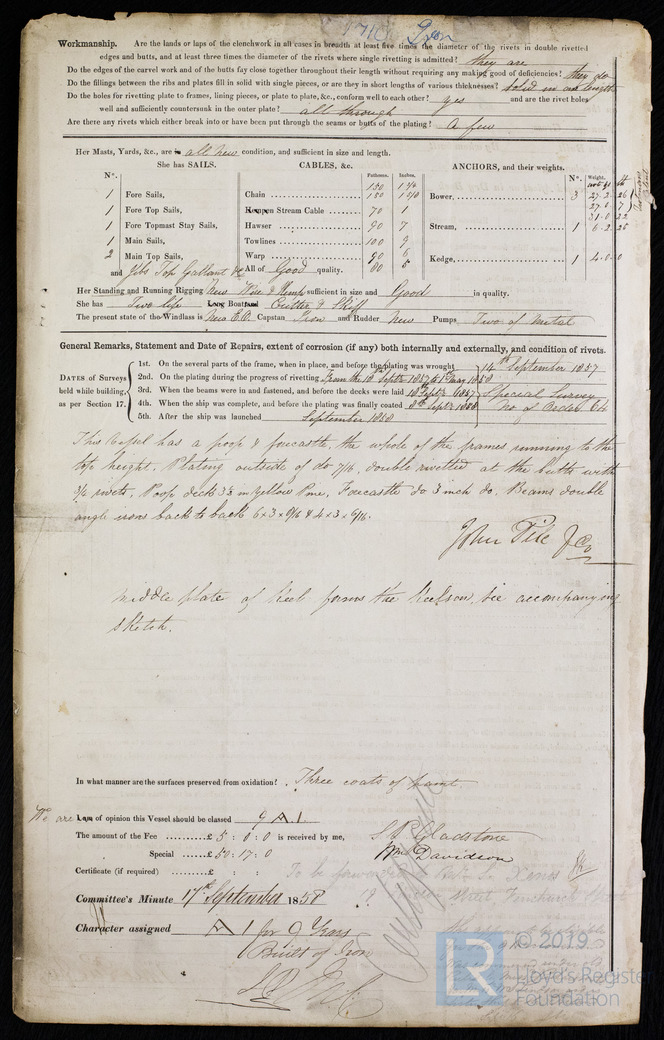 Iron
Workmanship. Are the lands or laps of the clenchwork in all cases in breadth at least five times the diameter of the rivets in double rivetted
edges and butts, and at least three times the diameter of the rivets where single rivetting is admitted? they are
Do the edges of the carvel work and of the butts fay close together throughout their length without requiring any making good of deficiencies? they do
Do the fillings between the ribs and plates fill in solid with single pieces, or are they in short lengths of various thicknesses? Solid in one length
Do the holes for rivetting plate to frames, lining pieces, or plate to plate, &c., conform well to each other? yes and are the rivet holes
well and sufficiently countersunk in the outer plate? all through
Are there any rivets which either break into or have been put through the seams or butts of the plating? A few
Her Masts, Yards, &c., are in all new condition, and sufficient in size and length.
She has SAILS. CABLES, &c. ANCHORS, and their weights.
N°. Fathoms. Inches. N°. Weight.
1 Fore Sails, Chain 150 Bower, 3 27.2.26
1 Fore Top Sails, Hempen Stream Cable 70 1 27.0.7
1 Fore Topmast Stay Sails, Hawser 90 7 31.0.22
1 Main Sails, Towlines 100 9 Stream, 1
2 Main Top Sails, Warp 90 6 Kedge, 1 4.0.0
and Jibs Top Gallant &c All of Good quality. 5
Her Standing and Running Rigging New Wire & Hemp sufficient in size and Good in quality.
She has Two life Long Boat and Cutter & Skiff
The present state of the Windlass is New E.O. Capstan Iron and Rudder New Pumps Two of Metal
General Remarks, Statement and Date of Repairs, extent of corrosion (if any) both internally and externally, and condition of rivets.
DATES of Surveys held while building, as per Section 17.
1st. On the several parts of the frame, when in place, and before the plating was wrought 14th September 1857
2nd. On the plating during the progress of rivetting From the 10th Septr 1857 to 1st May 1858
3rd. When the beams were in and fastened, and before the decks were laid 10th Septr 1857 Special Survey
4th. When the ship was complete, and before the plating was finally coated 8th Septr 1858 No of Order 64
5th. After the ship was launched September 1858
This Vessel has a poop & foucastle, the whole of the frames running to the
top height. Plating outside of do 7/16, double rivetted at the butts with
3/4 rivets. Poop deck 3½ in Yellow Pine. Foucastle do 3 inch do. Beams double
angle irons back to back 6 x 3 x 9/16 & 4 x 3 x 6/16.
John Pile & Co
Middle plate of keel forms the keelson, see accompanying
sketch.
In what manner are the surfaces preserved from oxidation? Three coats of paint.
We are I am of opinion this Vessel should be classed 9 A 1
The amount of the Fee £ 5 : 0 : 0 is received by me,
Gladstone
Special £ 50 : 17 : 0
Wm Davidson
Certificate (if required) £ : :
To be forwarded to
street, Fenchurch Street
Committee's Minute 17th September 1858
Character assigned A 1 for 9 Years
Built of Iron
LR
© 2019
Lloyd's Register
Foundation